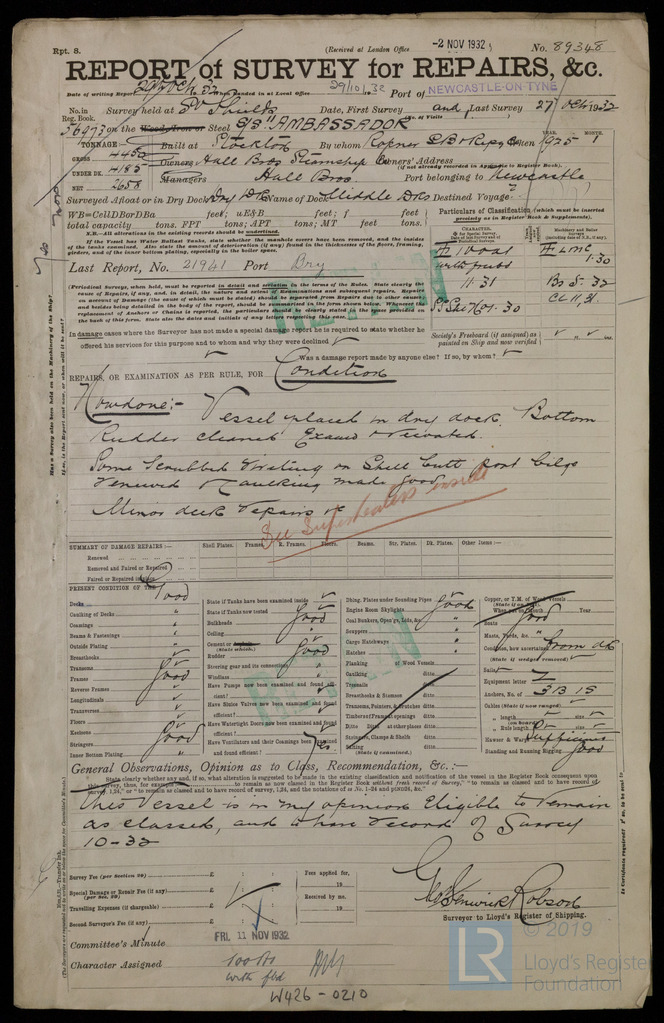 Rpt. 8.
(Received at London Office -2 NOV 1932
No. 89348
REPORT of SURVEY for REPAIRS, &c.
Date of writing Report 29 Oct. 32 When handed in at Local Office 29/10/32 Port of NEWCASTLE-ON-TYNE
No. in Reg. Book. Survey held at So Shields Date, First Survey and Last Survey 27 Oct 1932
56973 on the Wood, Iron or Steel S/S "AMBASSADOR"
TONNAGE:— Built at Stockton By whom Ropner S.B. & Repg Co When 1925 MONTH. 1
GROSS 4450 Owners Hall Bros Steamship Co Owners' Address
(if not already recorded in Appendix to Register Book).
UNDER DK. 4185 Managers Hall Bros Port belonging to Newcastle
NET 2658
Surveyed Afloat or in Dry Dock Dry Dk Name of Dock Middle Dks Destined Voyage
WB=CellDBorDBa feet; uE&B feet; f feet
total capacity tons. FPT tons; APT tons; MT feet tons.
N.B.—All alterations in the existing records should be underlined.
If the Vessel has Water Ballast Tanks, state whether the manhole covers have been removed, and the insides
of the tanks examined. Also state the amount of deterioration (if any) found in the thicknesses of the floors, framing,
girders, and of the inner bottom plating, especially in the boiler space.
Particulars of Classification (which must be inserted precisely as in Register Book & Supplements).
Last Report, No. 21941 Port Bry
+ 100A1
with freebd
11.31
SSNo1 Nwc. 30
+ LMC
1.30
BS. 32
CL 11,31
(Periodical Surveys, when held, must be reported in detail and seriatim in the terms of the Rules. State clearly
the cause of Repairs, if any, and, in detail, the nature and extent of Examinations and subsequent repairs. Repairs
on account of Damage (the cause of which must be stated) should be separated from Repairs due to other causes,
and besides being detailed in the body of the report, should be summarised in the form shown below.
In damage cases where the Surveyor has not made a special damage report he is required to state whether he
offered his services for this purpose and to whom and why they were declined
Society's Freeboard (if assigned) as
painted on Ship and now verified
Was a damage report made by anyone else? If so, by whom?
REPAIRS, OR EXAMINATION AS PER RULE, FOR Condition
Now done:- Vessel placed in dry dock. Bottom
Rudder cleaned Examd & recoated.
Some Scrubbed Riveting on Shell butt port bilge
renewed & caulking made good.
Minor deck repairs
See Superheaters inside
REVIEW
SUMMARY OF DAMAGE REPAIRS:— Shell Plates. Frames. R. Frames. Floors. Beams. Str. Plates. Dk. Plates. Other Items:—
Renewed
Removed and Faired or Repaired
Faired or Repaired in place
PRESENT CONDITION OF THE
Decks Good
Caulking of Decks "
Coamings "
Beams & Fastenings "
Outside Plating "
Breasthooks
Transoms
Frames Good
Reverse Frames
Longitudinals
Transverses
Floors
Keelsons
Stringers Good
Inner Bottom Plating "
State if Tanks have been examined inside
State if Tanks now tested
Bulkheads Good
Ceiling
Cement or Asphalt (State which.) Good
Rudder
Steering gear and its connections
Windlass
Have Pumps now been examined and found efficient?
Have Sluice Valves now been examined and found efficient?
Have Watertight Doors now been examined and found efficient?
Have Ventilators and their Coamings been examined and found efficient? Yes.
Dblng. Plates under Sounding Pipes Good
Engine Room Skylights
Coal Bunkers, Open'gs, Lids, &c. "
Scuppers "
Cargo Hatchways "
Hatches "
Planking of Wood Vessels
Caulking ditto
Treenails ditto
Breasthooks & Stemson ditto
Transoms, Pointers, & Crutches ditto
Timbers of Frame at openings ditto
Ditto Ditto at other places ditto
Stringers, Clamps & Shelfs ditto
Copper, or Y.M. of Wood Vessels (State if on Felt).
When put on, Month Year
Boats Good
Masts, Yards, &c. "
Condition, how ascertained from dk
(State if wedges removed)
Sails
Equipment letter Z
Anchors, No. of 3B 1S
Cables (State if now ranged)
" length size
Rule length size
Hawser & Warps Sufficient
Standing and Running Rigging Good
General Observations, Opinion as to Class, Recommendation, &c.:—
State clearly whether any, if so, what alteration is suggested to be made in the existing classification and notification of the vessel in the Register Book consequent upon
this survey, thus, for example—
This Vessel is in my opinion Eligible to remain
as classed, and to have record of Survey
10-32
Survey Fee (per Section 29) £ : :
Special Damage or Repair Fee (if any) (per Sec. 29) £ : :
Travelling Expenses (if chargeable) £ : :
Second Surveyor's Fee (if any) £ : :
Fees applied for,
19
Received by me,
19
Geo Fenwick Robson
Surveyor to Lloyd's Register of Shipping.
Committee's Minute FRI. 11 NOV 1932
Character Assigned 100A1
with fbd
W426-0210
© 2019
LR
Lloyd's Register
Foundation